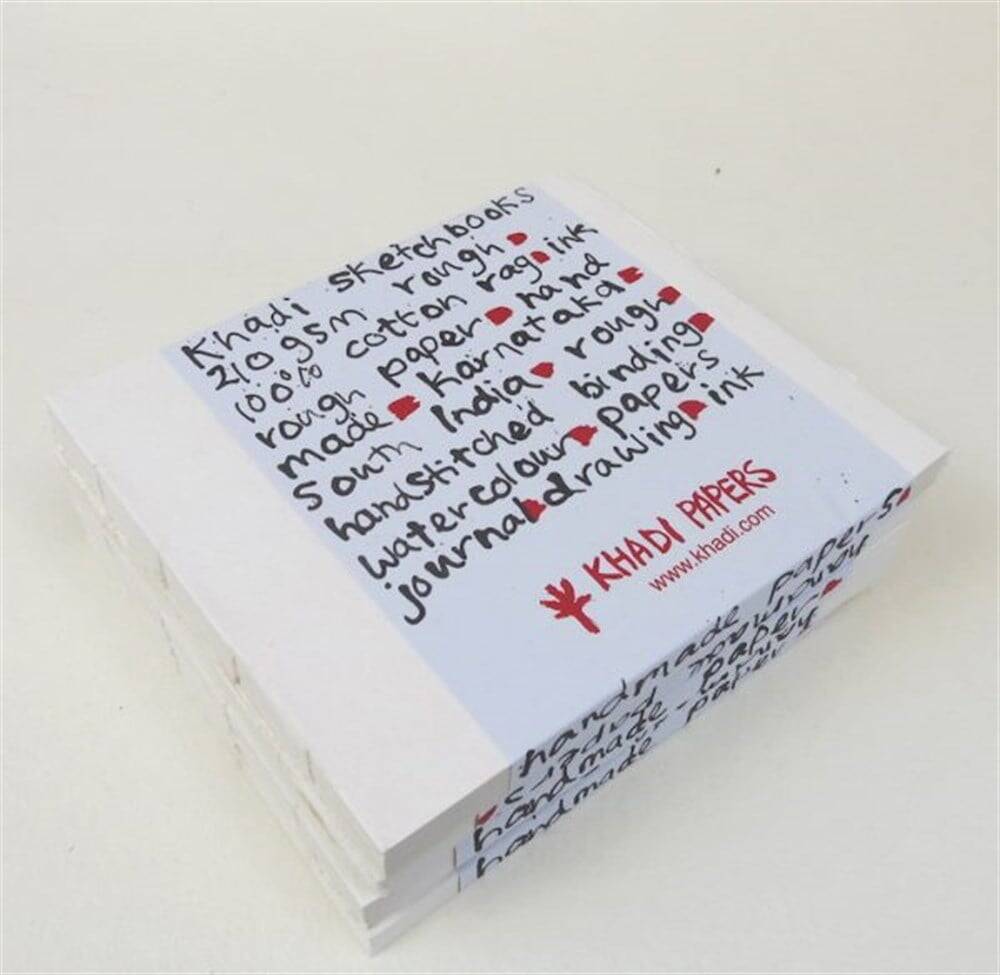 Khadi sketchbooks
210 gsm rough
100% cotton rag ink
rough paper hand
made Karnataka
South India rough
handstitched binding
watercolour papers
journal drawing ink
KHADI PAPERS
www.khadi.com
handmade papers
paper
handmade paper
handmade paper